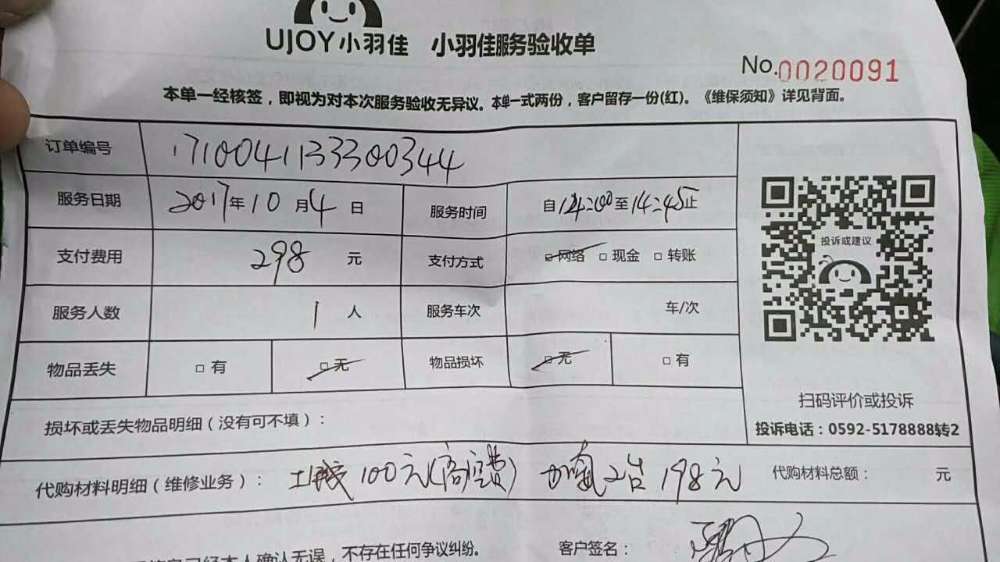 UJOY小羽佳 小羽佳服务验收单
No.0020091
本单一经核签，即视为对本次服务验收无异议。本单一式两份，客户留存一份(红)。《维保须知》详见背面。
订单编号 1710041133300344
服务日期 2017年10月4日 服务时间 自12:00至14:45止
支付费用 298 元 支付方式 □网络 □现金 □转账
投诉或建议
服务人数 1 人 服务车次 车/次
物品丢失 □有 □无 物品损坏 □无 □有
扫码评价或投诉
损坏或丢失物品明细（没有可不填）：
投诉电话：0592-5178888转2
代购材料明细（维修业务）： 100元(高空费) 加氟2台198元 代购材料总额： 元
已经本人确认无误，不存在任何争议纠纷。 客户签名：